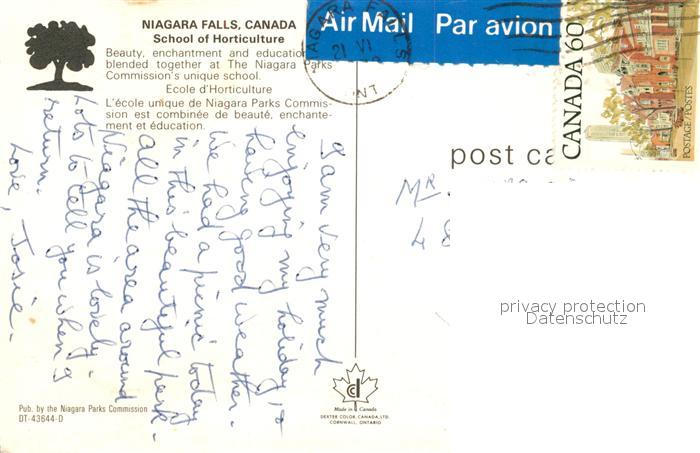 NIAGARA FALLS, CANADA
School of Horticulture
Beauty, enchantment and education
blended together at The Niagara Parks
Commission's unique school.
Ecole d'Horticulture
L'école unique de Niagara Parks Commis-
sion est combinée de beauté, enchante-
ment et éducation.
Air Mail Par avion
NIAGARA FALLS
21 VI
ONT
CANADA 60
POSTAGE/POSTES
post ca
I am very much
enjoying my holiday &
having good weather.
We had a picnic today
in this beautiful park.
All the area around
Niagara is lovely.
Lots to tell you when I
return.
Love, Josie.
Mr
48
privacy protection
Datenschutz
Made in Canada
DEXTER COLOR, CANADA, LTD.
CORNWALL, ONTARIO
Pub. by the Niagara Parks Commission
DT-43644-D